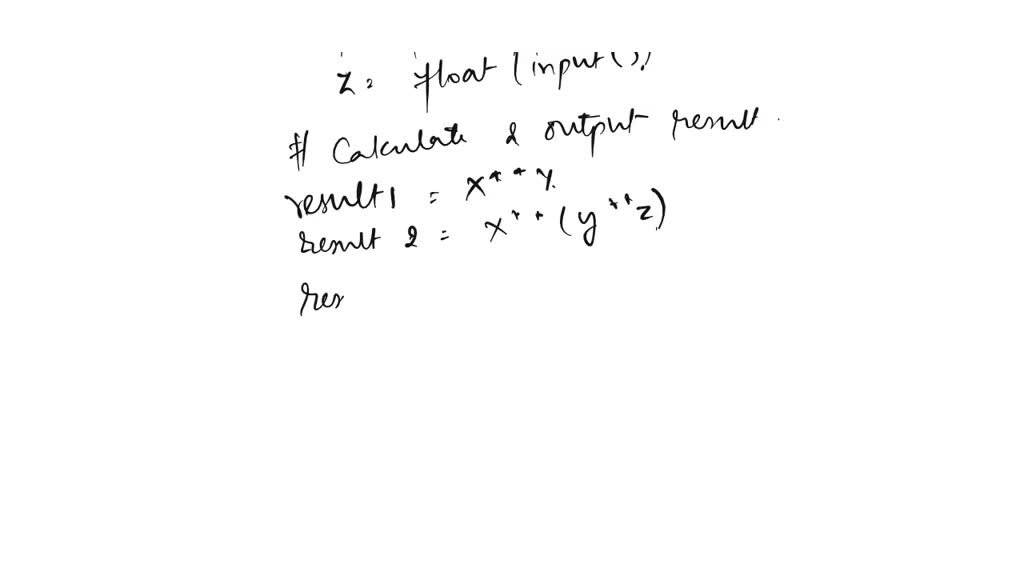 z = float(input())
# Calculate & output result.
result1 = x**y.
result 2 = x**(y**z)
res